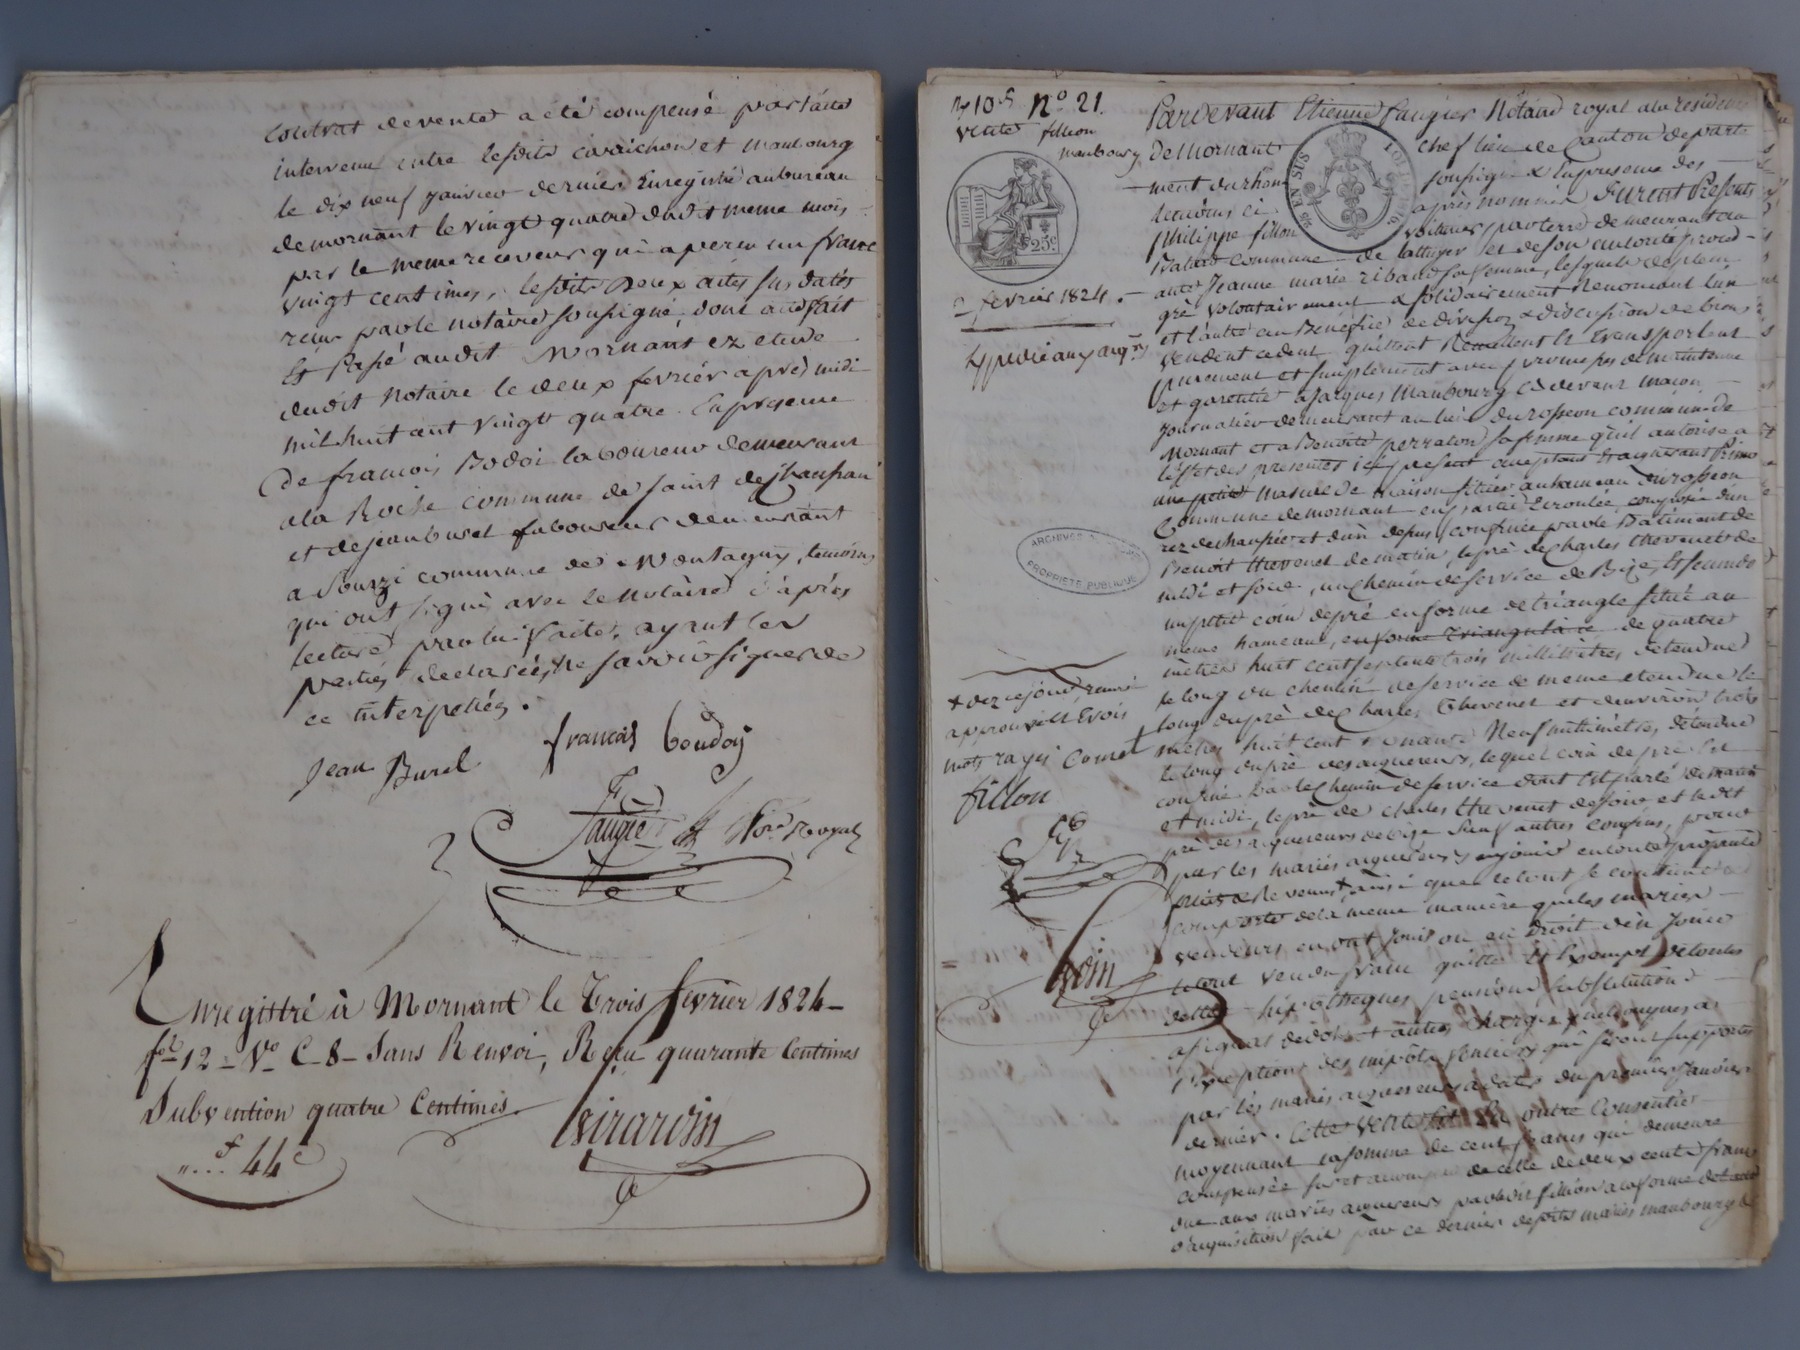 contrat de vente a été compensé par l'acte
intervenu entre lesdits coraichon et maubourg
le dix neuf janvier dernier Enregistré au bureau
de mornant le vingt quatre dudit meme mois
par le meme receveur qui a perçu un franc
vingt centimes, lesdits Deux actes sus datés
recus par le notaire soussigné, dont acte fait
Et Passé audit Mornant ez etude
dudit Notaire le deux fevrier après midi
mil huit cent vingt quatre. En presence
De francois Bodoi laboureur demeurant
a la Roche commune de saint
et de jean burel laboureur demeurant
a Sourzi commune de Montagny, temoins
qui ont signé avec le Notaire d'après
lecture par lui faite, ayant les
parties declarées Ne savoir signer de
ce interpellées.
Jean Burel francois boudoy
faugier Nore Royal
Enregistré à Mornant le Trois fevrier 1824
fol 12 Vo C 8 Sans Renvoi, Reçu quarante Centimes
Subvention quatre Centimes.
Girardin
f 44 c
No 21.
vente fillion
maubourg
25c
2 fevrier 1824.
Pardevant Etienne faugier Notaire royal a la residence
de Mornant chef lieu de canton departe
EN SUS
ment du rhône soussigné & En presence des
temoins ci après nommés Furent Presents
Philippe fillon voiturier par terre demeurant au
commune de lattuyer et de son autorité proced
ante Jeanne marie ribaud sa femme, lesquels de plein
gré volontairement & solidairement Renonçant l'un
et l'autre au Benefice de division & discussion de biens
vendent cedent quittent Remettent Et transportent
purement et simplement avec promesses de maintenue
et garentie a jacques Maubourg ci devant maçon
journalier demeurant au lieu du rosseon commune de
Mornant et a Benoite perraton sa femme qu'il autorise a
l'effet des presentes ici present acceptant & acquerant Primo
une petite masure de maison située au hameau du rosseon
Commune de mornant en partie Ecroulée, composée d'un
rez de chaussée et d'un depus, confinée par le Batiment de
ARCHIVES
PROPRIETE PUBLIQUE
Benoit thevenet de matin, le pré de Charles thevenet de
midi et soir, un chemin de service de Bize, Et secundo
un petit coin de pré en forme de triangle situé au
meme hameau, en forme triangulaire de quatre
mètres huit cent septante trois millimètres d'etendue
le long du chemin de service de meme etendue le
long du pré de Charles thevenet et d'environ trois
mètres huit cent nonante Neuf millimètres, d'etendue
le long du pré des acquereurs, lequel coin de pré Est
confiné par le chemin de service dont Est parlé de matin
et midi, le pré de charles thevenet de soir et le dit
pré des acquereurs de bize sauf autres confins, pour
par les mariés acquereurs en jouir en toute proprieté
fruits & Revenus, ainsi que le tout se contient &
comporte de la meme manière que les mariés
vendeurs en ont joui ou eu droit d'en jouir
le tout vendu franc quitte Et Exempt de toutes
dettes hipothèques pensions substitutions
assignat de dot et autres charges quelconques a
l'exception des impôts fonciers qui seront supportés
par les mariés acquereurs a dater du premier Janvier
dernier. Cette vente Est En outre Consentie
moyennant la somme de cent francs qui demeure
compensée sur et a compte de celle de deux cents francs
due aux mariés acquereurs par ledit fillion a la forme de l'acte
d'acquisition fait par ce dernier desdits mariés maubourg
approuvé Et trois
mots rayés Comet
fillon